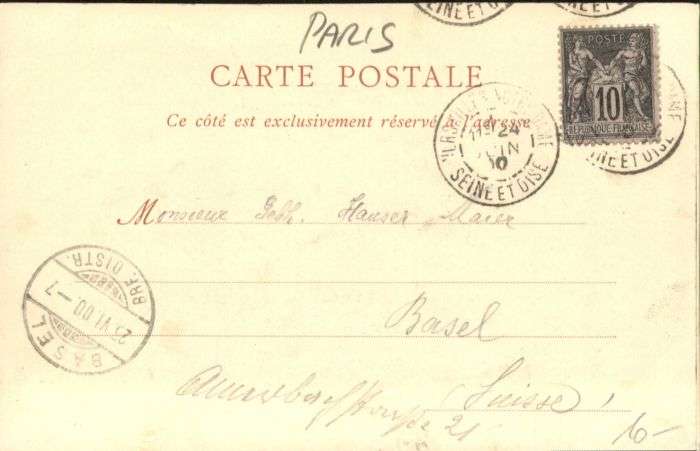 SEINE ET OISE
PARIS
CARTE POSTALE
Ce côté est exclusivement réservé à l'adresse
POSTE
10
REPUBLIQUE FRANÇAISE
24
SEINE ET OISE
INE ET OISE
Monsieur Gebh. Hauser Maier
BASEL
BRF. DISTR.
23 VI 00 — 7
Basel
Suisse
21
10-